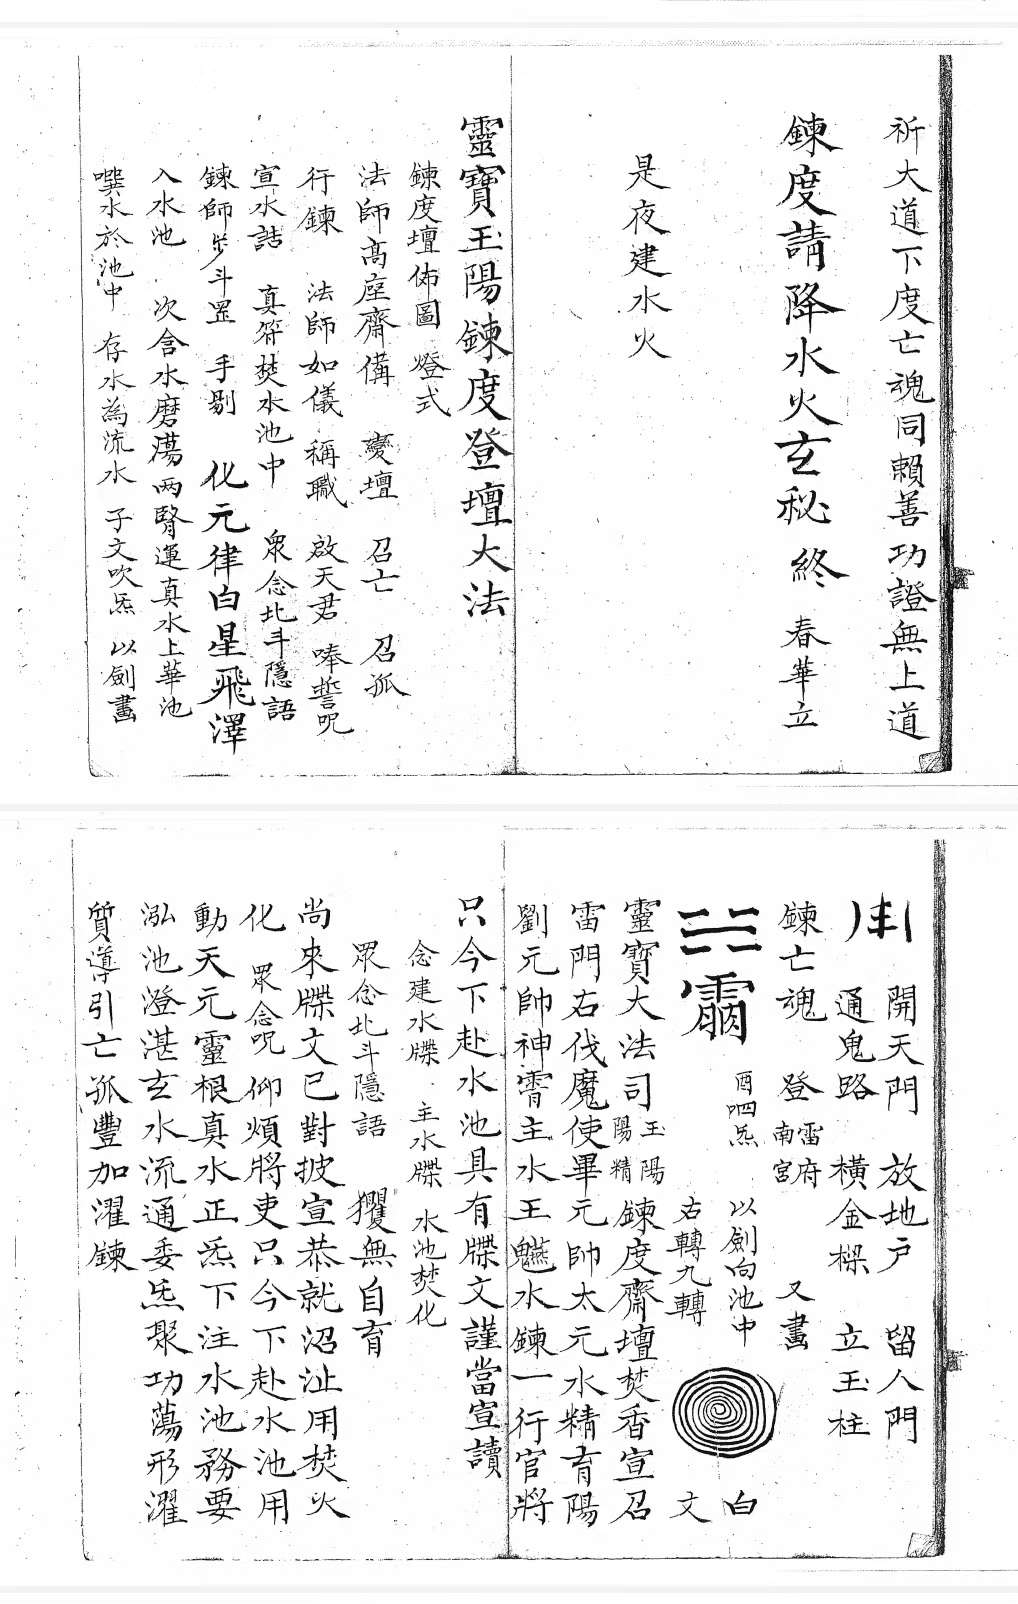 祈大道下度亡魂同賴善功證無上道
鍊度請降水火玄秘 終 春華立
是夜建水火
靈寶玉陽鍊度登壇大法
鍊度壇佈圖 燈式
法師高座齋備 變壇 召亡 召孤
行鍊 法師如儀 稱職 啟天君 唪誓呪
宣水誥 真符焚水池中 眾念北斗隱語
鍊師步斗罡 手剔 化元律白星飛澤
入水池 次含水磨蕩兩腎運真水上華池
噀水於池中 存水為流水 子文吹炁 以劍畫
開天門 放地戶 留人門
通鬼路 橫金樑 立玉柱
鍊亡魂 登 雷府 南宮 又畫
酉呬炁 以劍向池中 白
右轉九轉 文
靈寶大法司 玉陽 陽精 鍊度齋壇焚香宣召
雷門右伐魔使畢元帥太元水精育陽
劉元帥神霄主水王 水鍊一行官將
只今下赴水池具有牒文謹當宣讀
念建水牒 主水牒 水池焚化
眾念北斗隱語 玃無自育
尚來牒文已對披宣恭就沼沚用焚火
化 眾念呪 仰煩將吏只今下赴水池用
動天元靈根真水正炁下注水池務要
泓池澄湛玄水流通委炁聚功蕩形濯
質導引亡孤豐加濯鍊